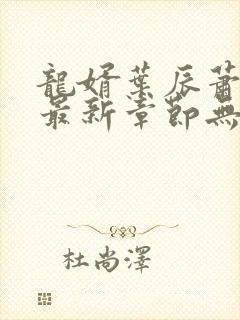 龍婿葉辰蕭
最新章節無
杜尚澤